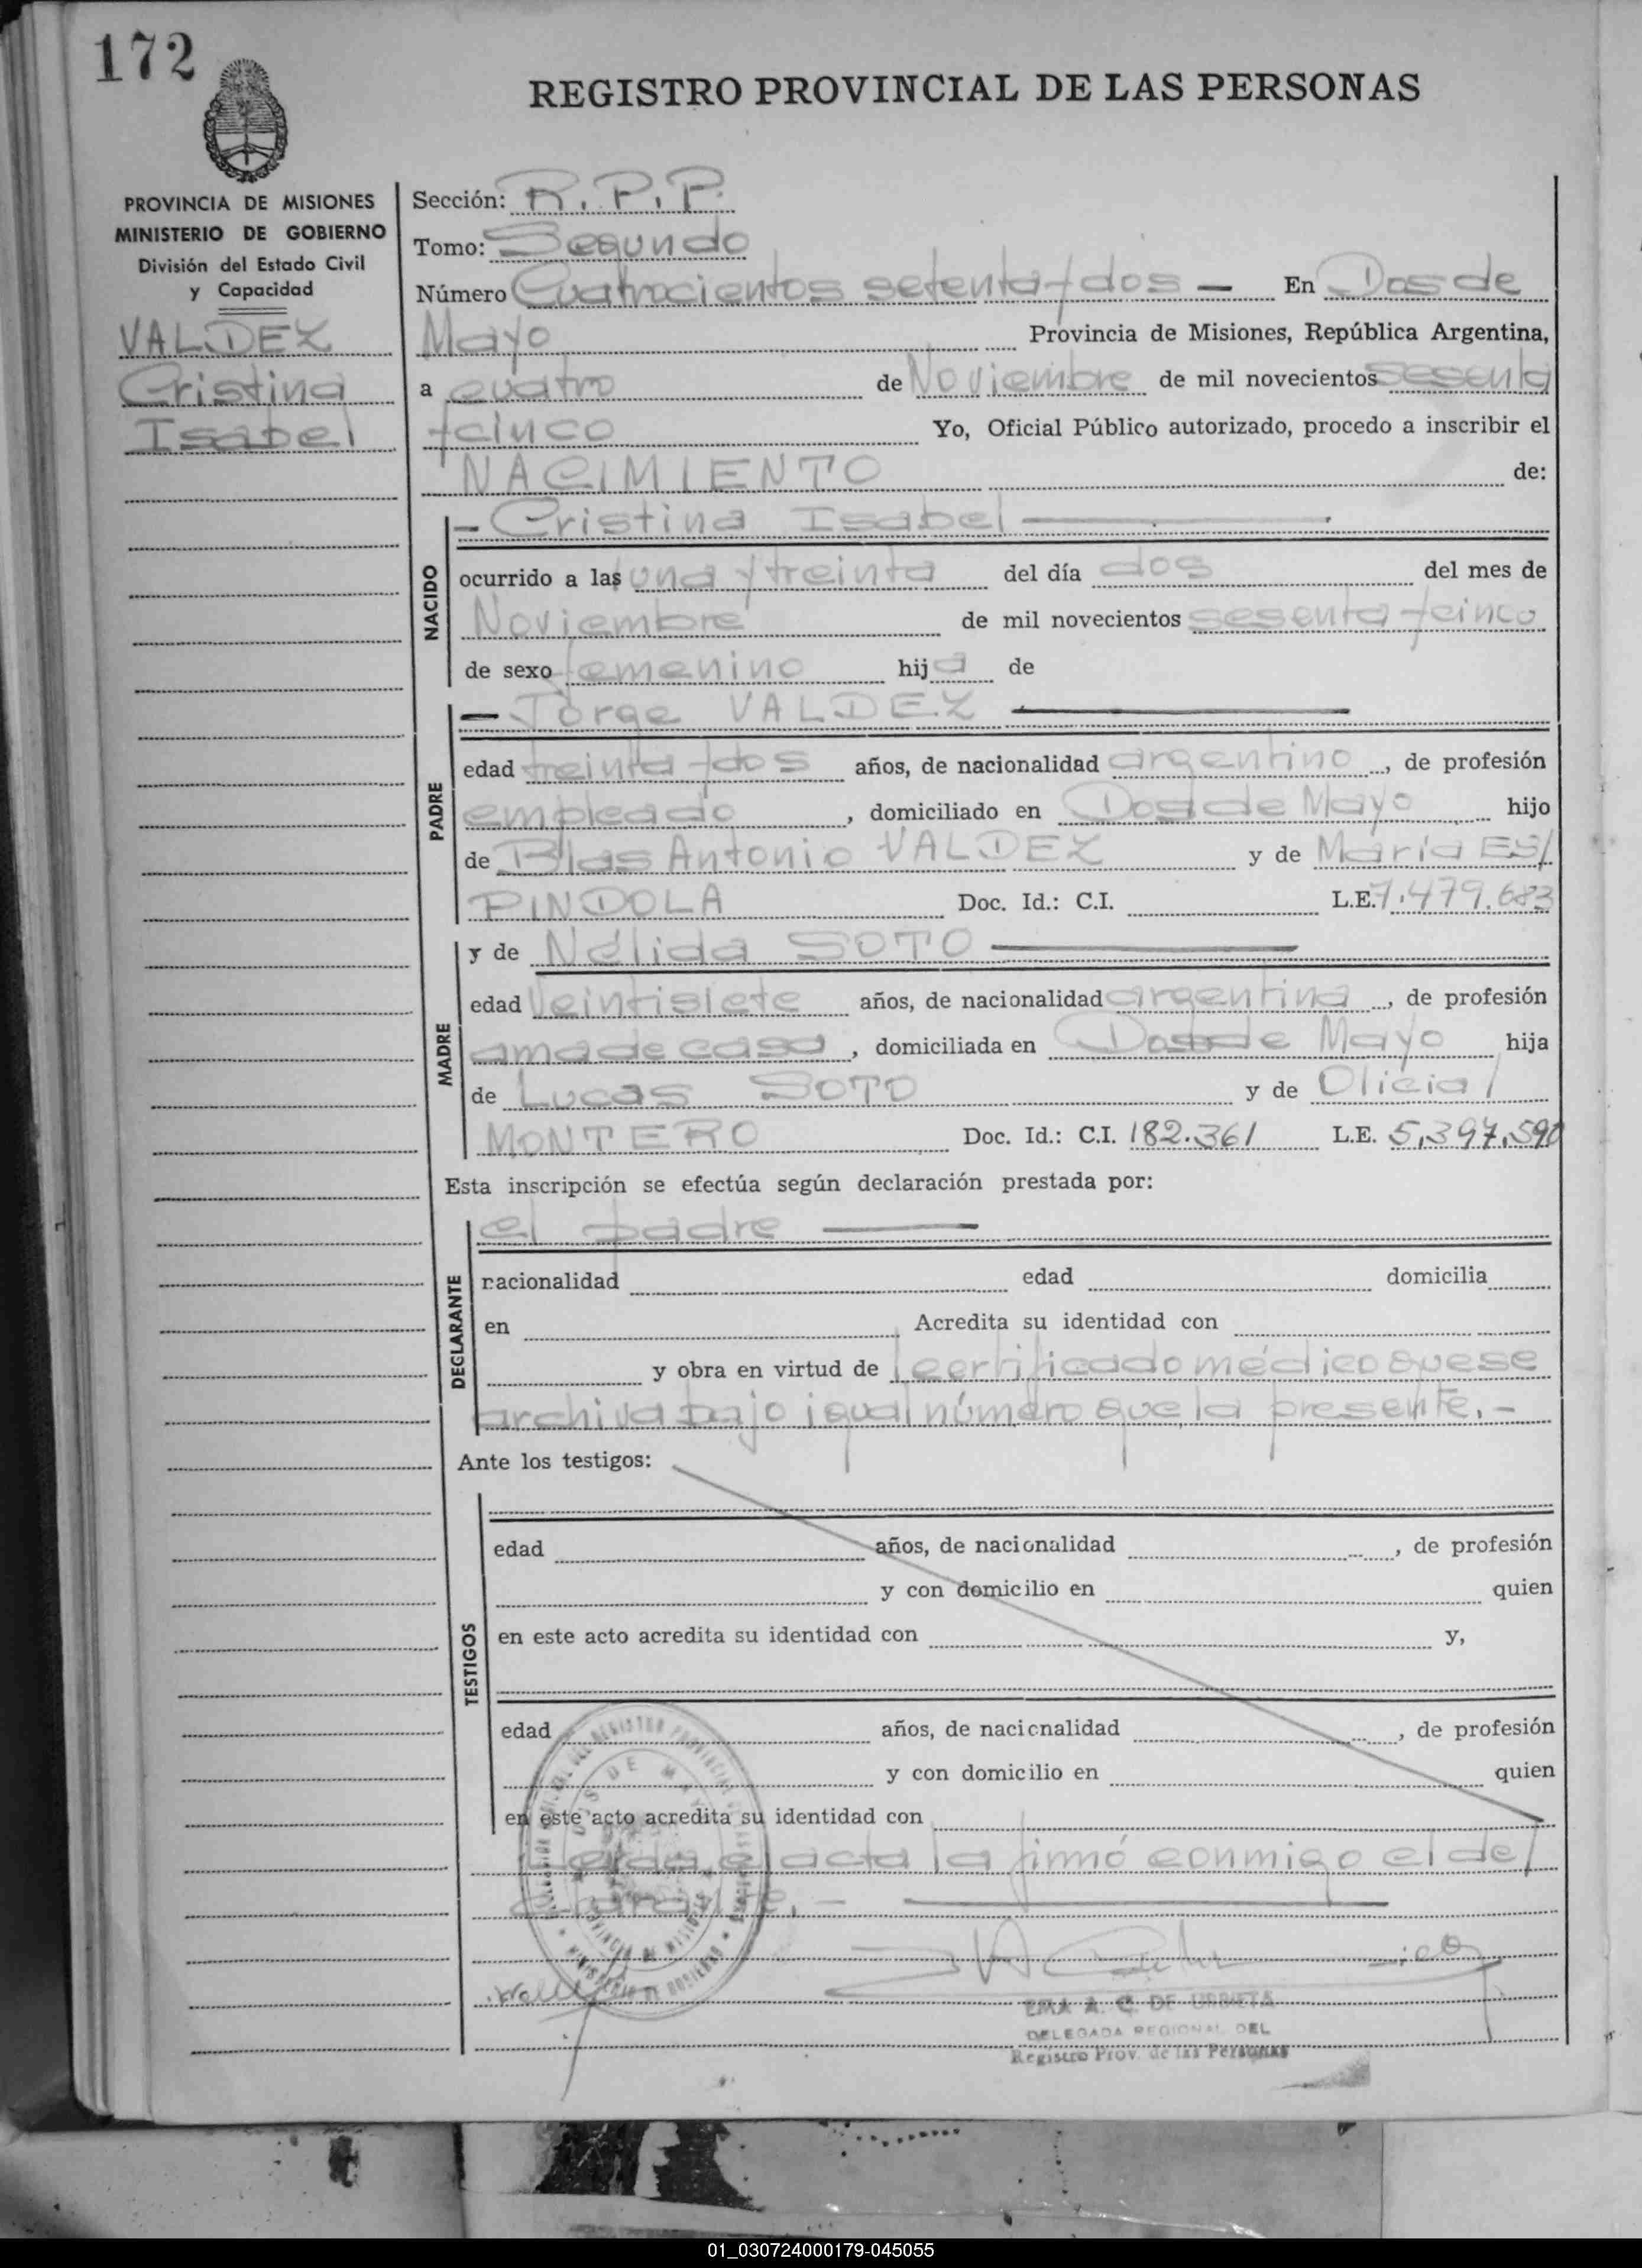 172
REGISTRO PROVINCIAL DE LAS PERSONAS
PROVINCIA DE MISIONES
MINISTERIO DE GOBIERNO
División del Estado Civil
y Capacidad
VALDEZ
Cristina
Isabel
Sección: R.P.P.
Tomo: Segundo
Número Cuatrocientos setenta y dos — En Dos de
Mayo Provincia de Misiones, República Argentina,
a cuatro de Noviembre de mil novecientos sesenta
y cinco Yo, Oficial Público autorizado, procedo a inscribir el
NACIMIENTO de:
NACIDO
— Cristina Isabel —
ocurrido a las una y treinta del día dos del mes de
Noviembre de mil novecientos sesenta y cinco
de sexo femenino hija de
PADRE
— Jorge VALDEZ —
edad treinta y dos años, de nacionalidad argentino, de profesión
empleado, domiciliado en Dos de Mayo hijo
de Blas Antonio VALDEZ y de María ES/
PINDOLA Doc. Id.: C.I. L.E. 7.479.683
MADRE
y de Nélida SOTO —
edad veintisiete años, de nacionalidad argentina, de profesión
ama de casa, domiciliada en Dos de Mayo hija
de Lucas SOTO y de Olicia/
MONTERO Doc. Id.: C.I. 182.361 L.E. 5,397,590
Esta inscripción se efectúa según declaración prestada por:
DECLARANTE
el padre —
nacionalidad edad domicilia
en Acredita su identidad con
y obra en virtud de certificado médico que se
archiva bajo igual número que la presente.-
Ante los testigos:
TESTIGOS
edad años, de nacionalidad , de profesión
y con domicilio en quien
en este acto acredita su identidad con y,
edad años, de nacionalidad , de profesión
y con domicilio en quien
en este acto acredita su identidad con
Leída el acta la firmó conmigo el de/
clarante.- —
EMA A. C. DE URBIETA
DELEGADA REGIONAL DEL
Registro Prov. de las Personas
01_030724000179-045055